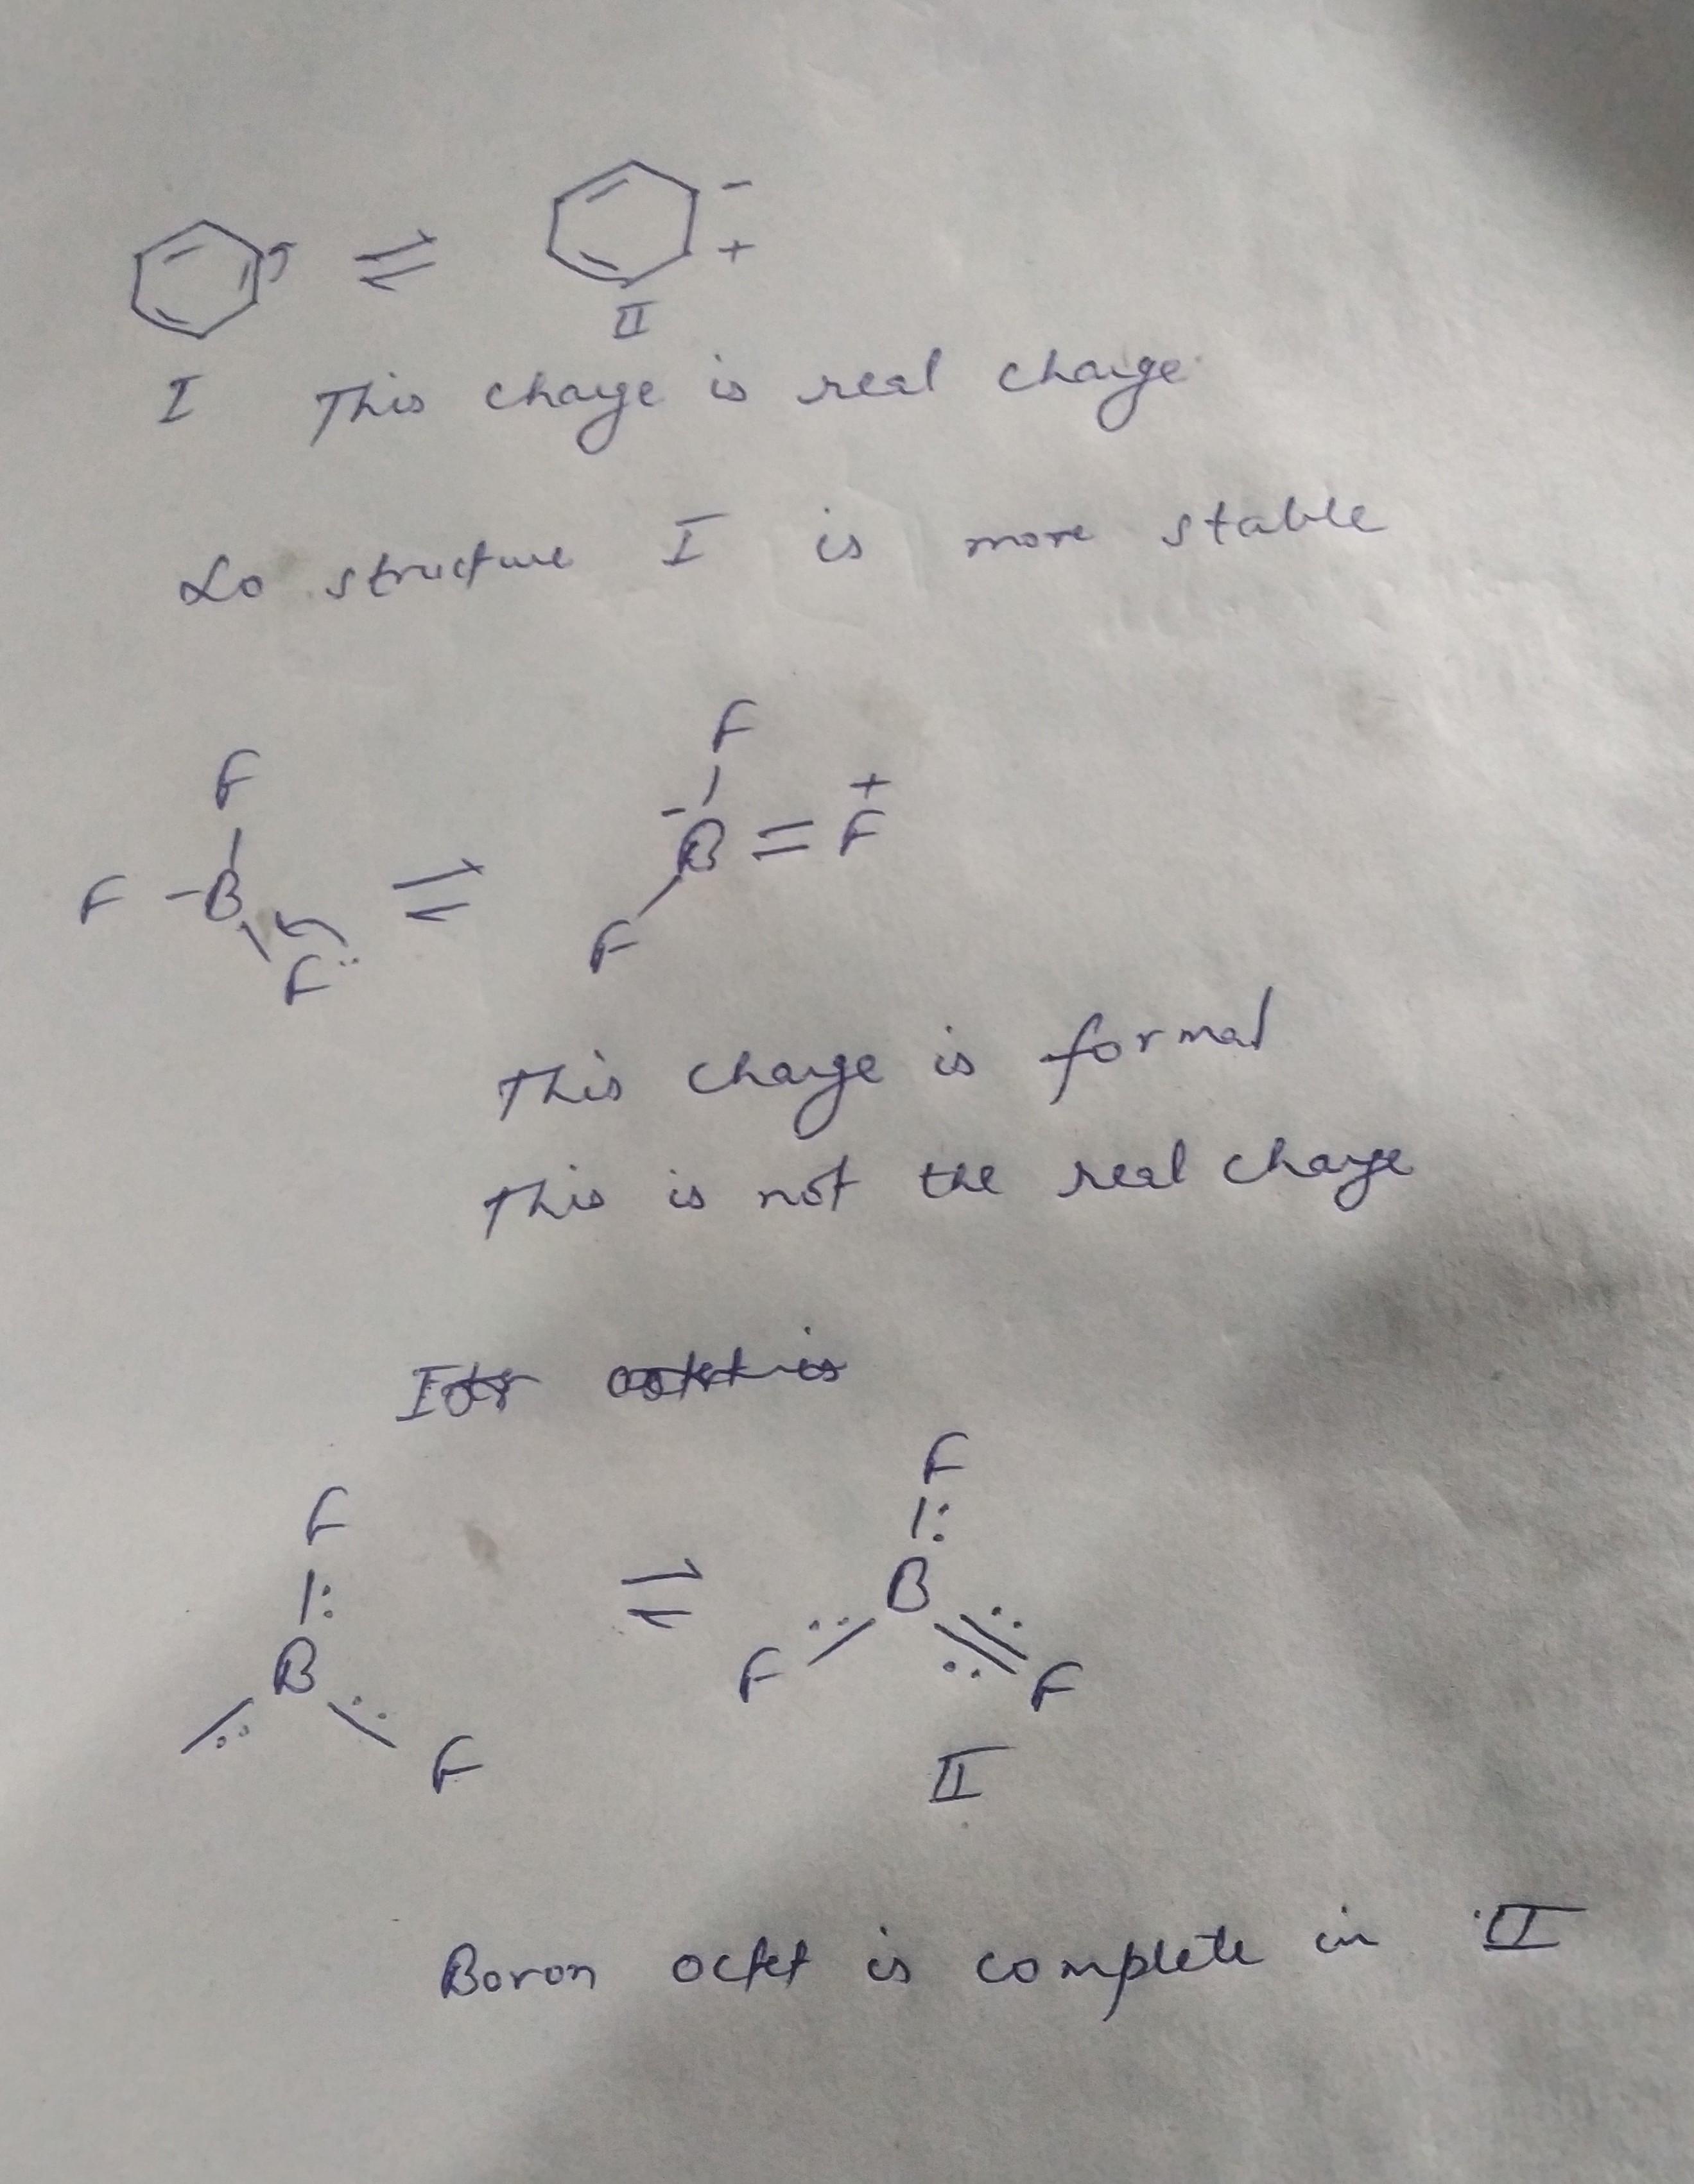 - +
II
I This charge is real charge
So structure I is more stable
F
F
+
- B = F
F - B
F
F
This charge is formal
This is not the real charge
F
F
B
B
F
F
F
II
Boron octet is complete in II